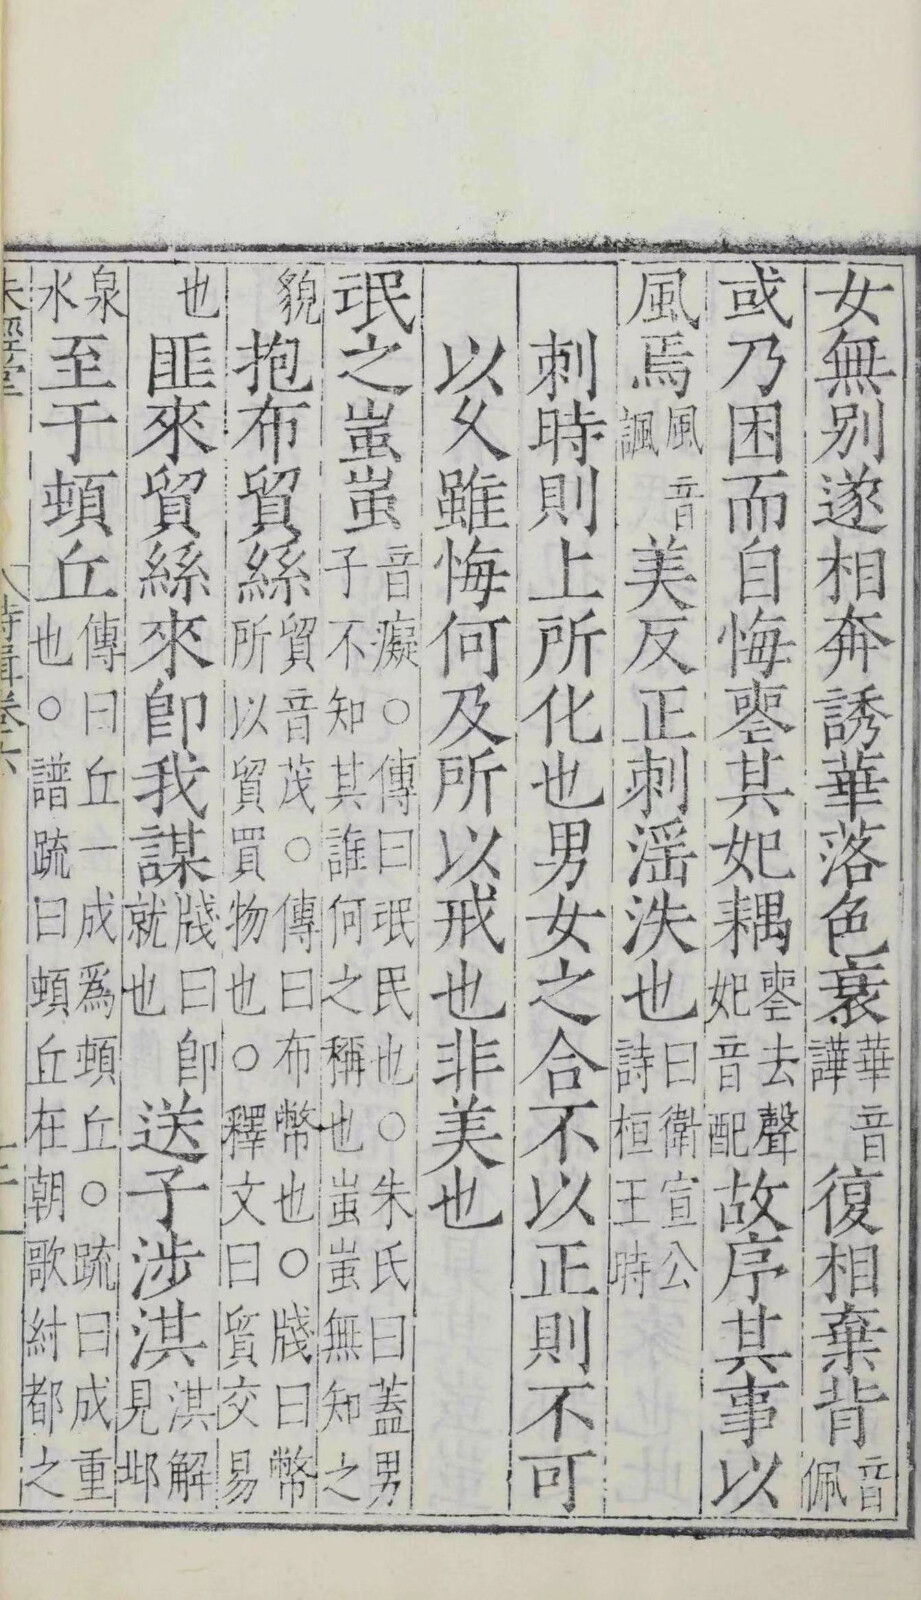 女無別遂相奔誘華落色衰華音譁復相棄背音佩
或乃困而自悔喪其妃耦喪去聲妃音配故序其事以
風焉風音諷美反正刺淫泆也曰衛宣公詩桓王時
刺時則上所化也男女之合不以正則不可
以久雖悔何及所以戒也非美也
氓之蚩蚩音癡○傳曰氓民也○朱氏曰蓋男子不知其誰何之稱也蚩蚩無知之
貌抱布貿絲貿音茂○傳曰布幣也○牋曰幣所以貿買物也○釋文曰貿交易
也匪來貿絲來卽我謀牋曰卽就也送子涉淇淇解見邶
泉水至于頓丘傳曰丘一成爲頓丘○疏曰成重也○譜疏曰頓丘在朝歌紂都之